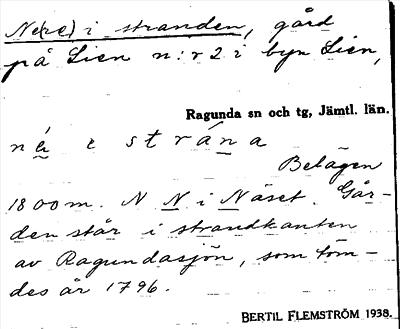 Ne(re) i stranden, gård
på Lien n:r 2 i byn Lien,
Ragunda sn och tg, Jämtl. län.
né i strána
Belägen
1800 m. N N i Näset. Går-
den står i strandkanten
av Ragundasjön, som töm-
des år 1796.
BERTIL FLEMSTRÖM 1938.